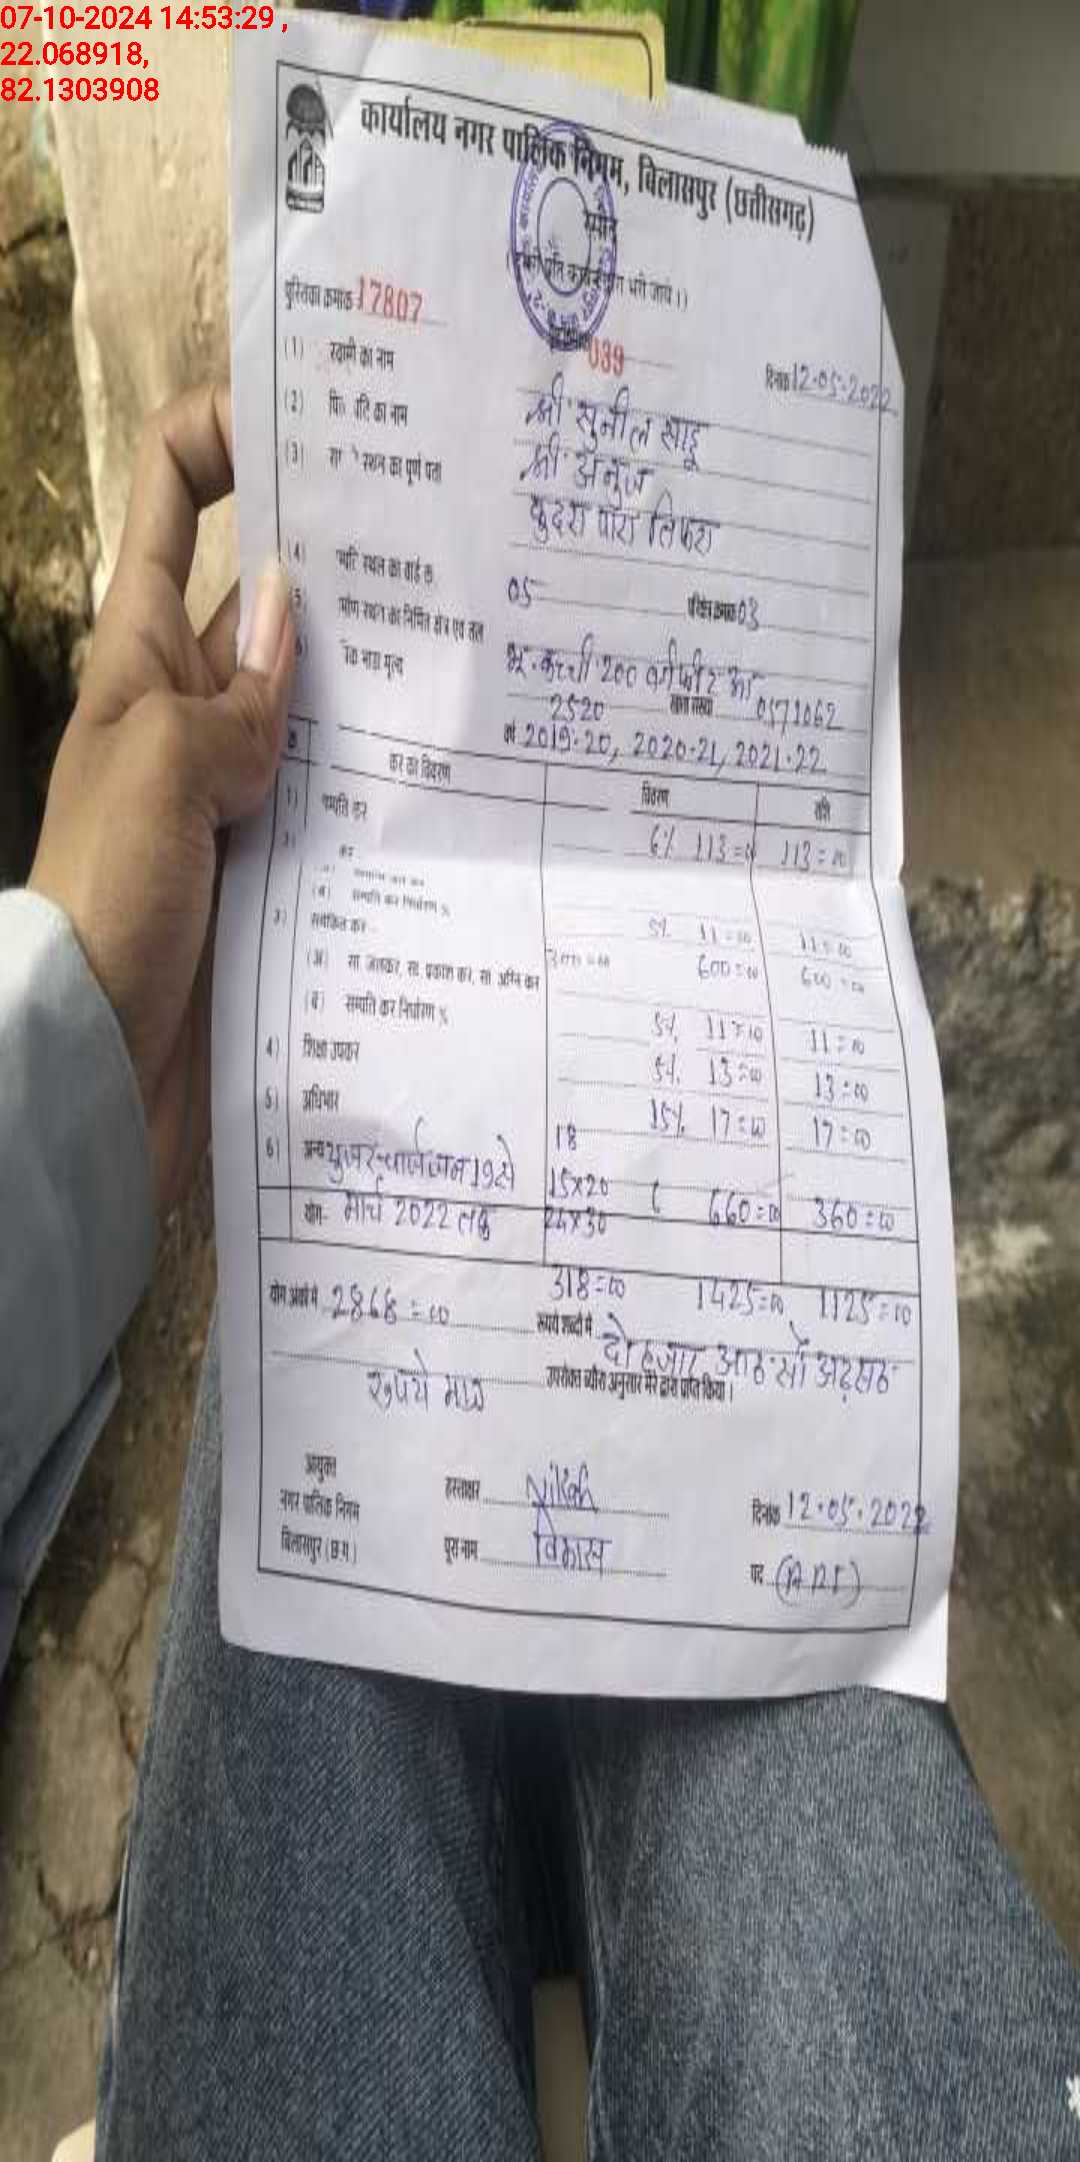 07-10-2024 14:53:29 ,
22.068918,
82.1303908
कार्यालय नगर पालिक निगम, बिलासपुर (छत्तीसगढ़)
पुस्तिका क्रमांक 17807
039
दिनांक 12-05-2022
(1) स्वामी का नाम श्री सुनील साहू
(2) का नाम श्री अनुज
(3) का पूर्ण पता तिफरा
(4) स्थल का वार्ड क्र. 05 03
5) निर्मित क्षेत्र एवं तल भू. कच्ची 200 वर्गफीट
भाड़ा मूल्य 2520 0571062
वर्ष 2019-20, 2020-21, 2021-22
कर का विवरण विवरण राशि
1) सम्पत्ति कर 6% 113=00 113=00
कर
(ब) सम्पत्ति कर निर्धारण % 5% 11=00 11=00
3) समेकित कर 600=00 600=00
(अ) सा. जलकर, सा. प्रकाश कर, सा. अग्नि कर
(ब) सम्पत्ति कर निर्धारण % 5% 11=00 11=00
4) शिक्षा उपकर 5% 13=00 13=00
5) अधिभार 15% 17=00 17=00
18
6) अन्य यूजर चार्ज जन 19 से 15x20 660=00 360=00
योग- मार्च 2022 तक
318=00 1425=00 1125=00
योग अंकों में 2868=00 रूपये शब्दों में दो हजार आठ सौ अड़सठ
रुपये मात्र उपरोक्त ब्यौरा अनुसार मेरे द्वारा प्राप्त किया।
आयुक्त
नगर पालिक निगम
बिलासपुर (छ.ग.)
हस्ताक्षर
दिनांक 12.05.2022
पूरा नाम विकास
पद